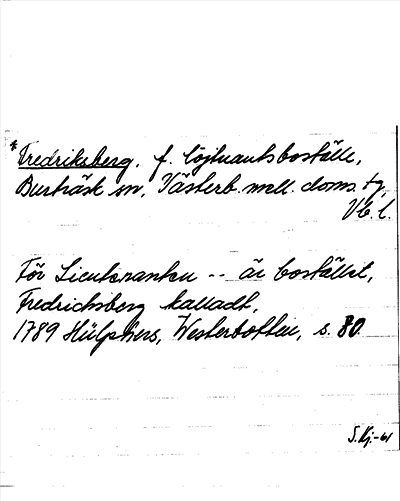 *Fredriksberg, f. löjtnantsboställe,
Burträsk sn, Västerb. mell. doms. tg,
Vb. l.
För Lieutenanten -- är bostället,
Fredrichsberg kalladt,
1789 Hülphers, Westerbotten, s. 80
S. Kj. -61